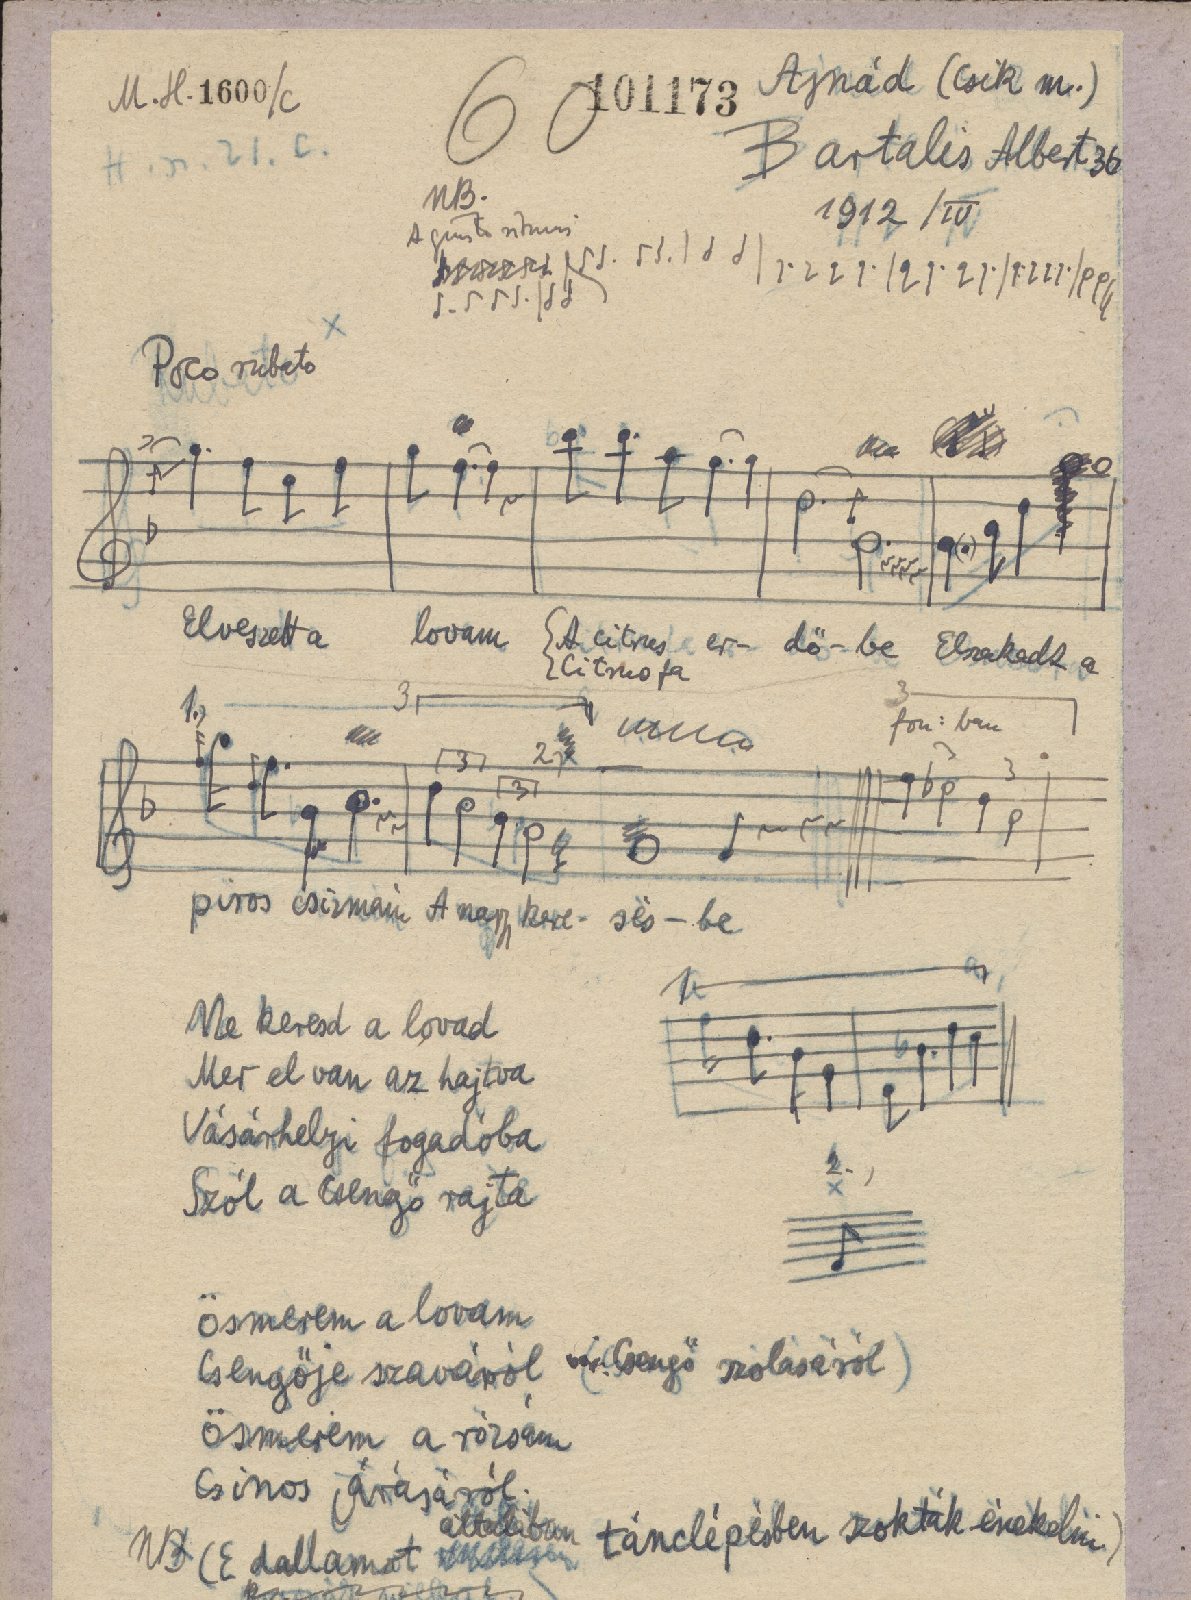 M.H. 1600/c
60
101173
Ajnád (Csik m.)
H.n. 21. C.
Bartalis Albert 36
1912 /IV
NB.
A giusto ritmus
Poco rubato x
Elveszett a lovam A citrus er- dö- be Elszakadt a
Citrusfa
1.) 3 fon: ban
3 2.) x 3 3
piros csizmám A nagy kere- sés- be
Ne keresd a lovad
Mer el van az hajtva
Vásárhelyi fogadóba
Szól a csengö rajta
1.
2.
x
Ösmerem a lovam
Csengöje szaváról (var. Csengö szólásáról)
Ösmerem a rózsám
Csinos járásáról.
általában
NB (E dallamot tánclépésben szokták énekelni.)